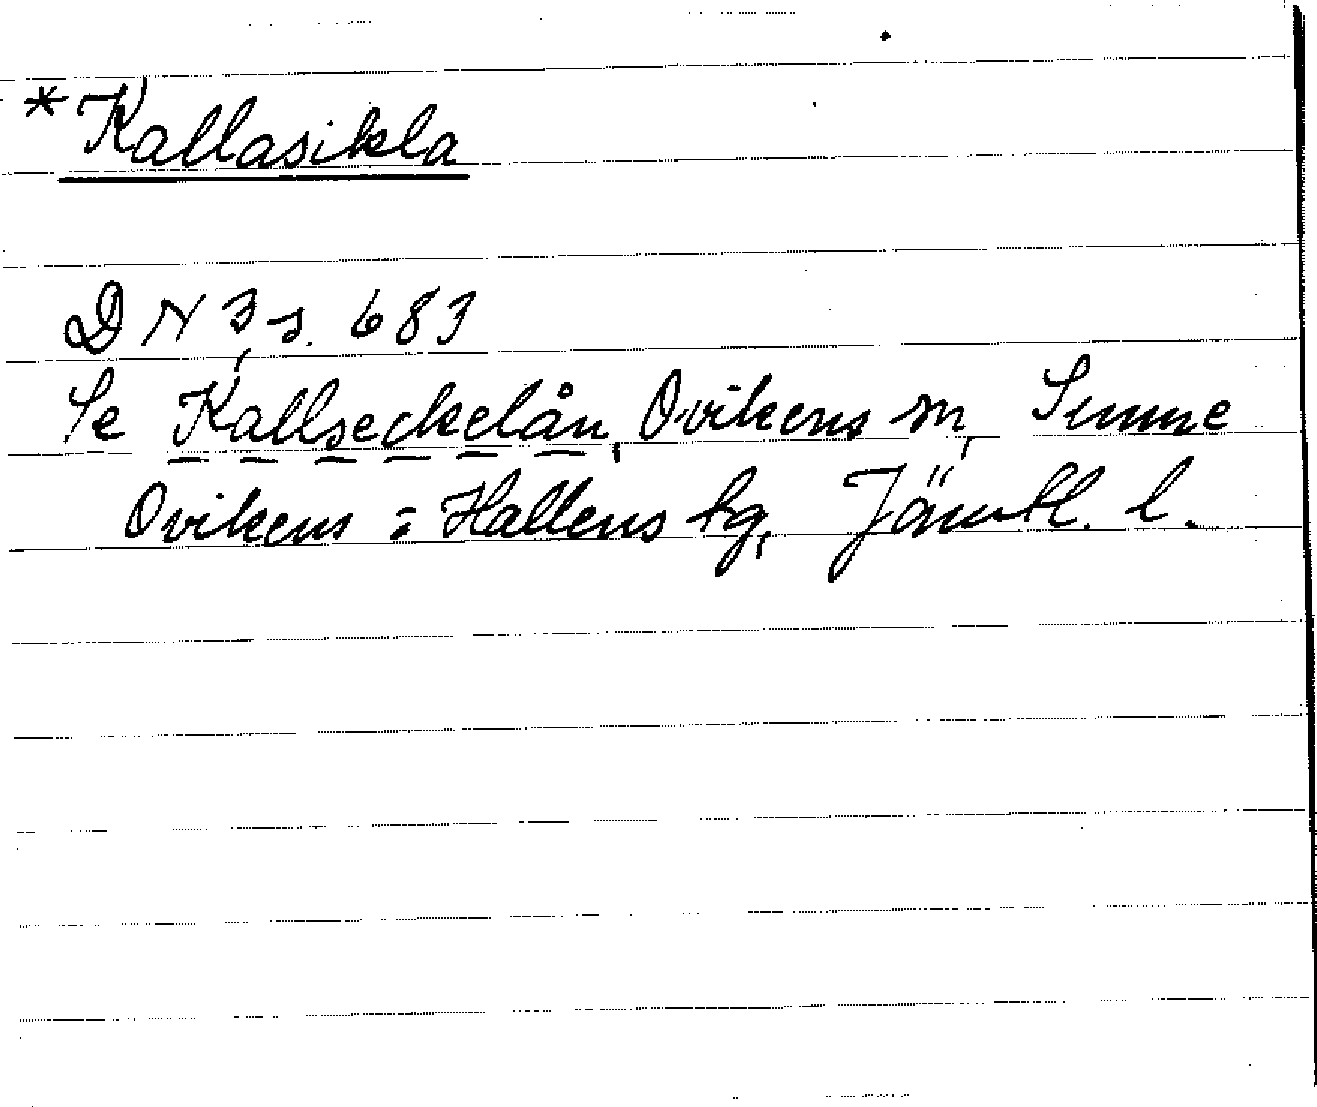 *Kallasikla
DN 3, s. 683
Se Kallseckelån, Ovikens sn, Sunne
Ovikens o Hallens tg, Jämtl. l.